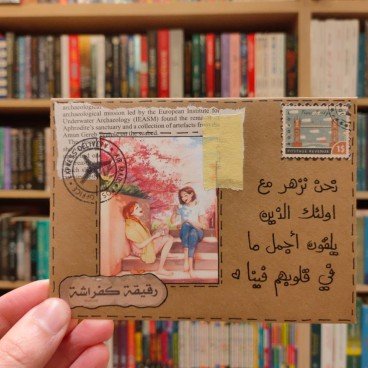 archaeological
archaeological mission led by the European Institute for
Underwater Archaeology (IEASM) found the
Aphrodite's sanctuary and a collection of artefacts from the
EXPRESS DELIVERY
POSTAGE REVENUE
15
نحن نزهر مع
اولئك الذين
يلقون أجمل ما
في قلوبهم فينا
رقيقة كفراشة